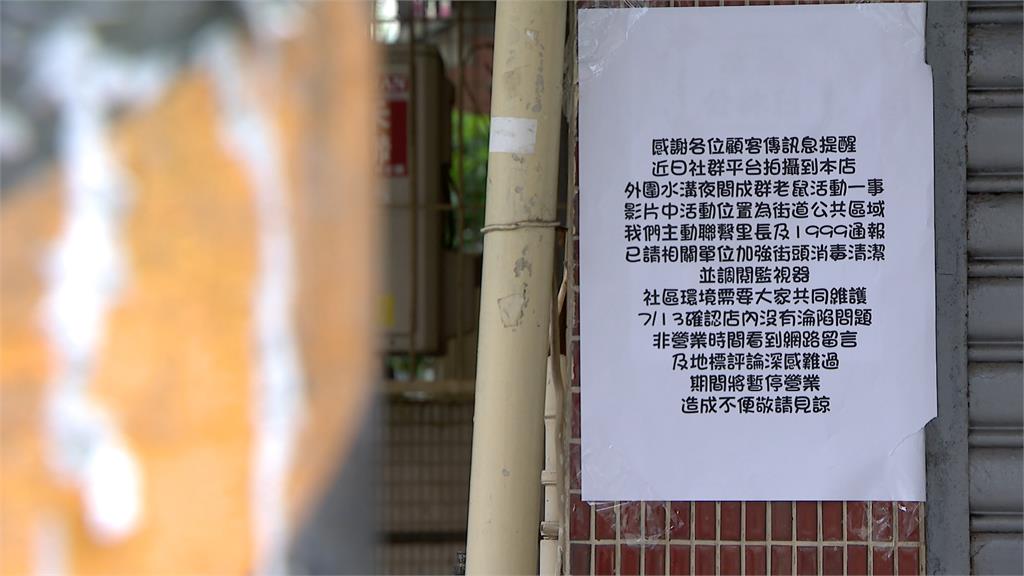 感謝各位顧客傳訊息提醒
近日社群平台拍攝到本店
外圍水溝夜間成群老鼠活動一事
影片中活動位置為街道公共區域
我們主動聯繫里長及1999通報
已請相關單位加強街頭消毒清潔
並調閱監視器
社區環境需要大家共同維護
7/13確認店內沒有淪陷問題
非營業時間看到網路留言
及地標評論深感難過
期間將暫停營業
造成不便敬請見諒